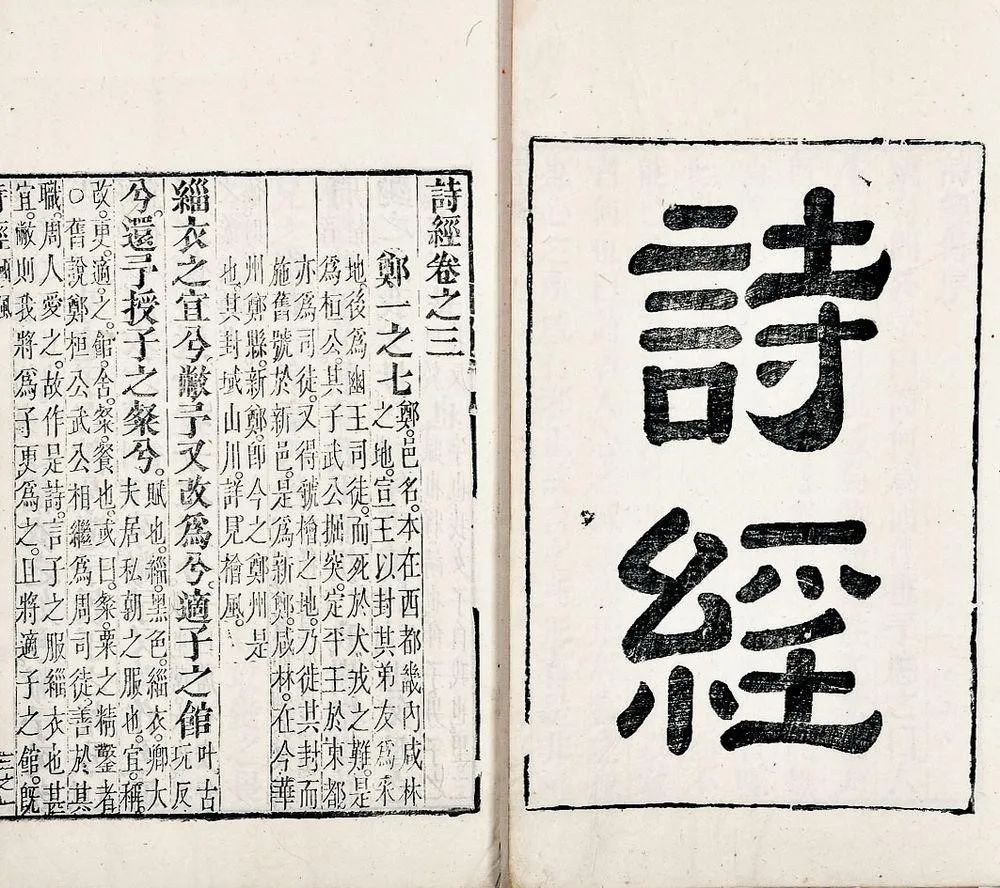 詩
經
詩經卷之三
鄭一之七 鄭。邑名。本在西都畿內咸林
之地。宣王以封其弟友爲采
地。後爲幽王司徒。而死於犬戎之難。是
爲桓公。其子武公掘突。定平王於東都。
亦爲司徒。又得虢檜之地。乃徙其封。而
施舊號於新邑。是爲新鄭。咸林。在今華
州鄭縣。新鄭。卽今之鄭州是
也。其封域山川。詳見檜風。
緇衣之宜兮。敝予又改爲兮。適子之館 叶古
玩反
兮。還予授子之粲兮。 賦也。緇。黑色。緇衣。卿大
夫居私朝之服也。宜。稱。
改。更。適。之。館。舍。粲。餐也。或曰。粲。粟之精鑿者。
○舊說鄭桓公武公相繼爲周司徒。善於其
職。周人愛之。故作是詩。言子之服緇衣也。甚
宜。敝則我將爲子更爲之。且將適子之館。旣